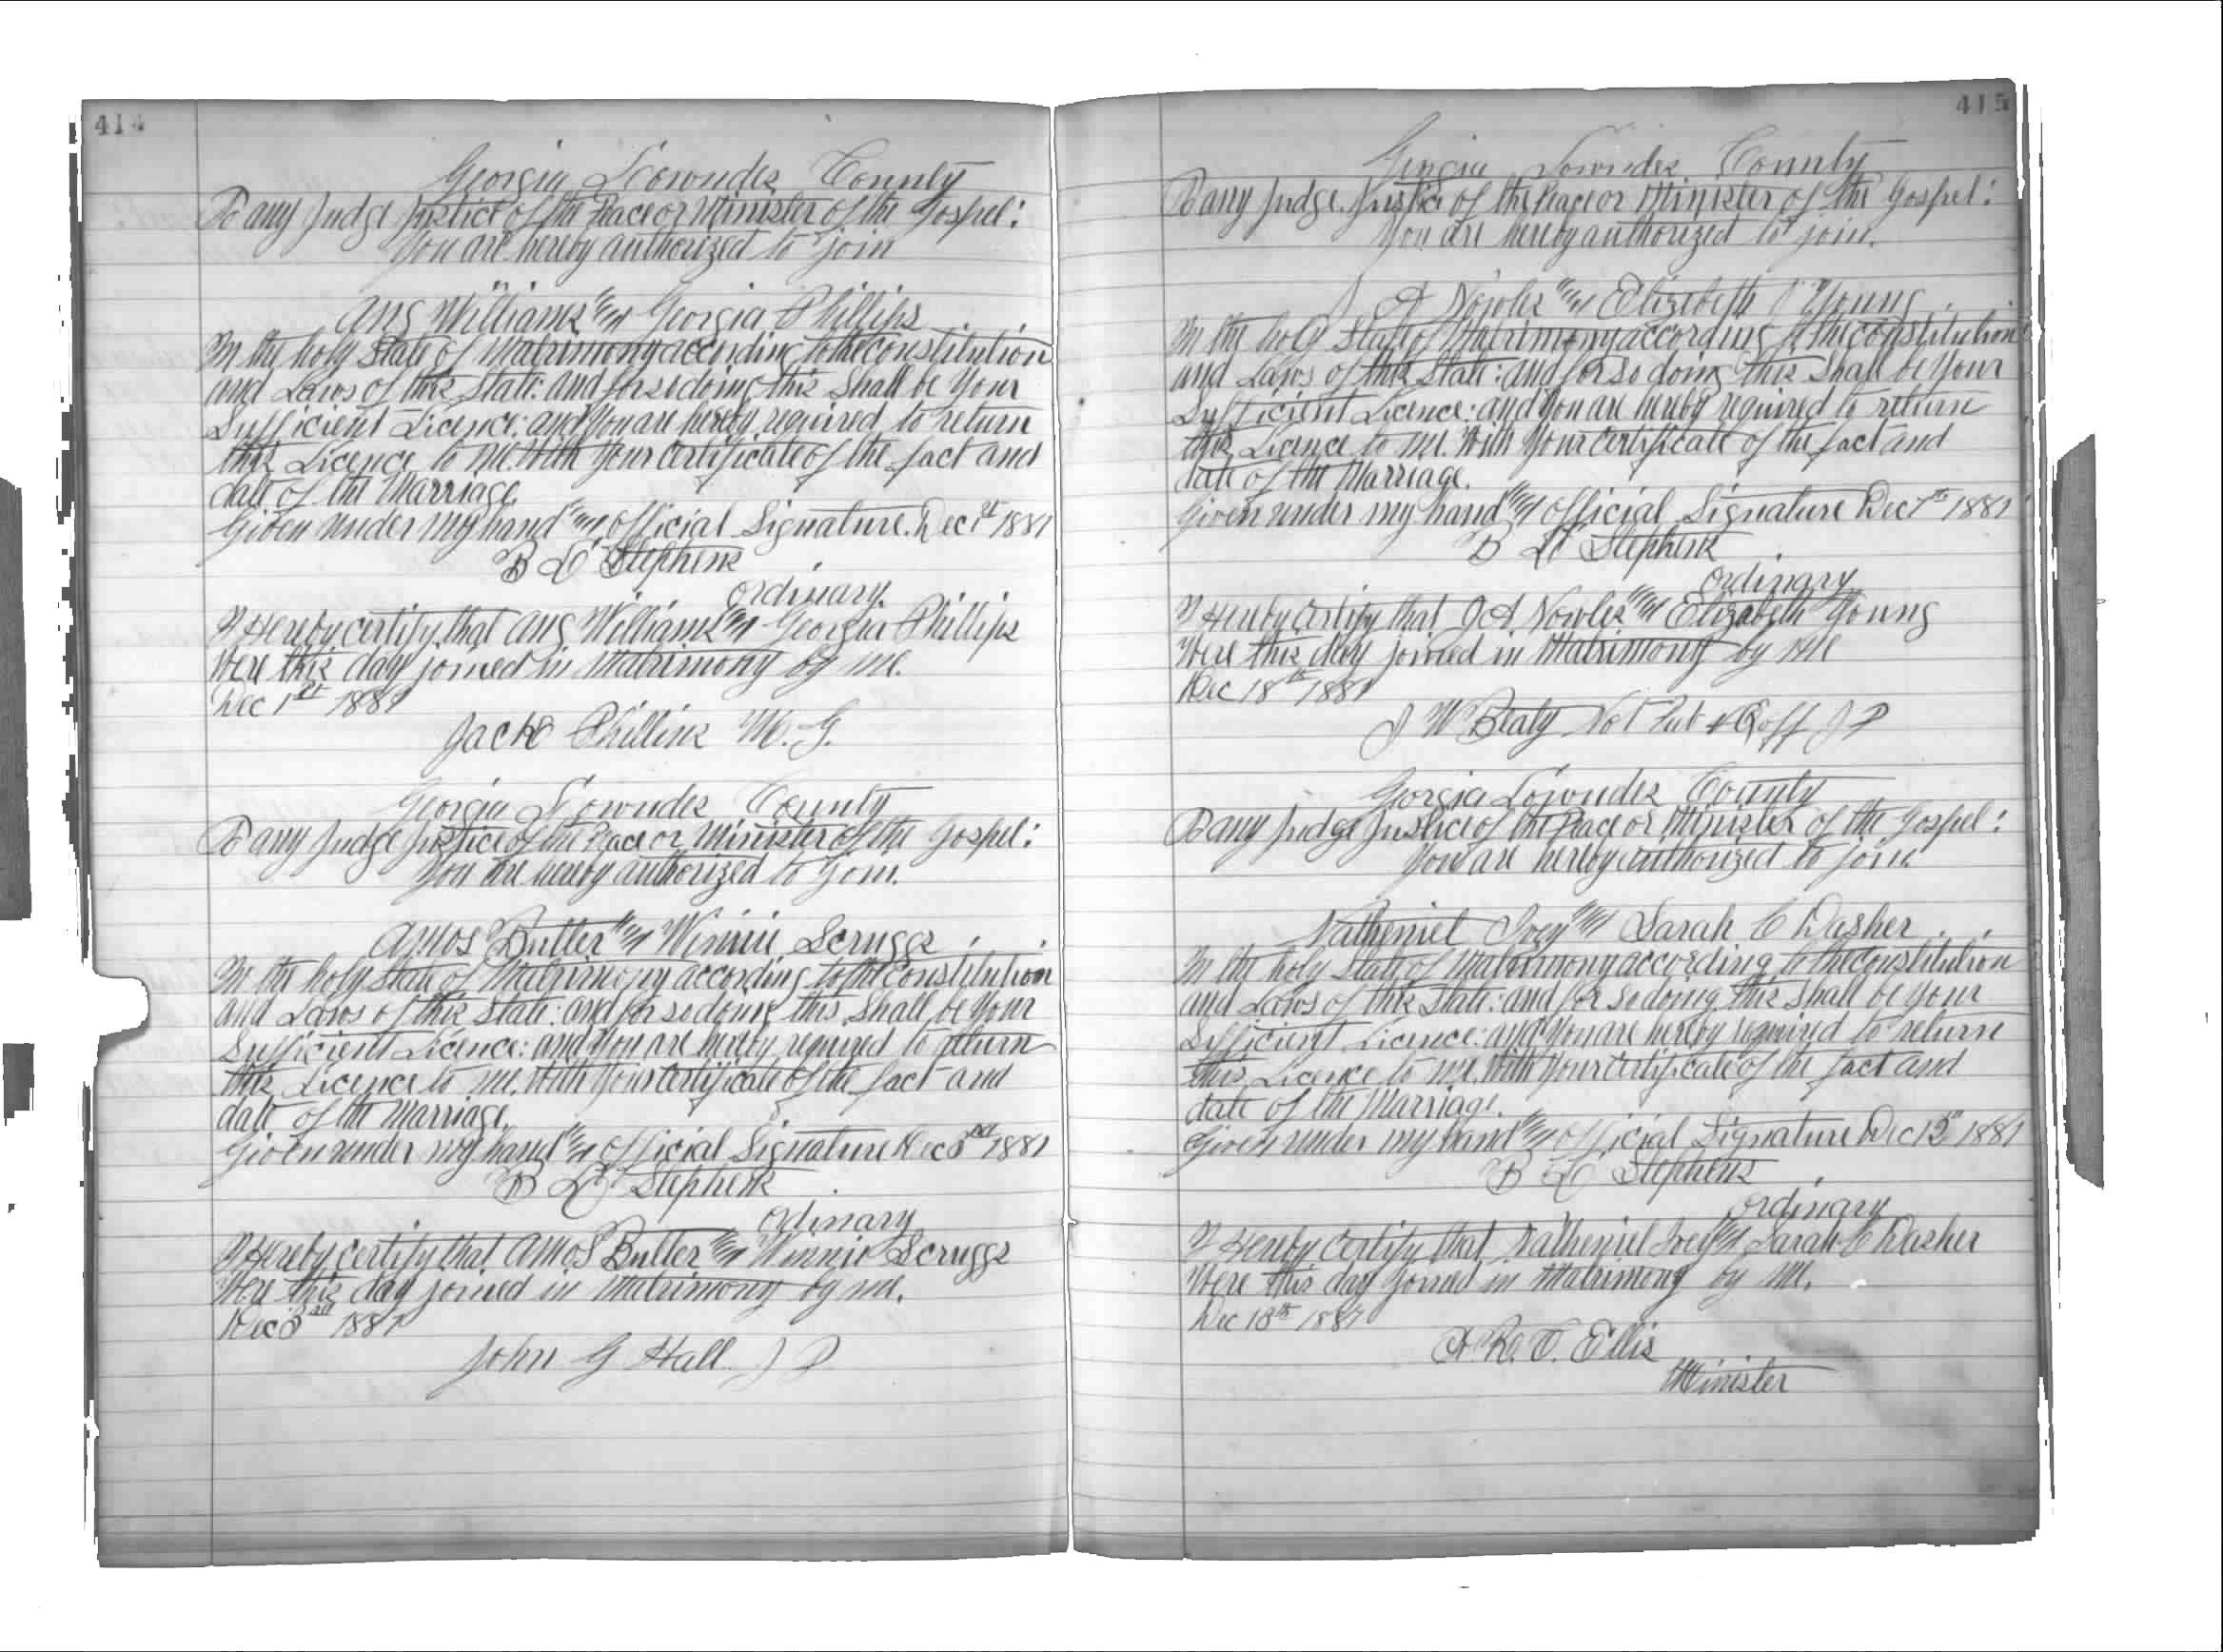 414
Georgia Lowndes County
To any Judge Justice of the Peace or Minister of the Gospel:
You are hereby authorized to join
Aug Williams and Georgia Phillips
In the holy State of Matrimony according to the constitution
and Laws of this State: and for so doing this Shall be Your
Sufficient Licence: and You are hereby required to return
this Licence to me. With Your Certificate of the fact and
date of the Marriage.
Given under my hand and official Signature. Dec 1st 1881
B L Stephens
ordinary
I Hereby certify that Aug Williams and Georgia Phillips
Were this day joined in Matrimony by me.
Dec 1st 1881
Jack Phillips M. G.
Georgia Lowndes County
To any Judge Justice of the Peace or Minister of the Gospel:
You are hereby authorized to join.
Amos Butler and Winnie Scruggs
In the holy State of Matrimony according to the constitution
and Laws of this State: and for so doing this Shall be Your
Sufficient Licence: and You are hereby required to return
this Licence to me. With Your Certificate of the fact and
date of the Marriage.
Given under my hand and official Signature Dec 1881
B L Stephens
ordinary
I Hereby certify that Amos Butler and Winnie Scruggs
Were this day joined in Matrimony by me.
Dec 1881
John G Hall J P
415
Georgia Lowndes County
To any Judge Justice of the Peace or Minister of the Gospel:
You are hereby authorized to join.
J A Nowles and Elizabeth Young
In the holy State of Matrimony according to the constitution
and Laws of this State: and for so doing this Shall be Your
Sufficient Licence: and You are hereby required to return
this Licence to me. With Your Certificate of the fact and
date of the Marriage.
Given under my hand and official Signature Dec 1881
B L Stephens
ordinary
I Hereby Certify that J A Nowles and Elizabeth Young
Were this day joined in Matrimony by me
Dec 18th 1881
J W Beaty Not Pub & Exoff J P
Georgia Lowndes County
To any Judge Justice of the Peace or Minister of the Gospel:
You are hereby authorized to join
Natheniel Ivey and Sarah C Dasher
In the holy State of Matrimony according to the constitution
and Laws of this State: and for so doing this Shall be your
Sufficient Licence: and You are hereby required to return
this Licence to me. With Your Certificate of the fact and
date of the Marriage.
Given under my hand and official Signature Dec 1881
B L Stephens
ordinary
I Hereby Certify that Natheniel Ivey and Sarah C Dasher
Were this day joined in Matrimony by me.
Dec 18th 1881
H. T. Ellis
Minister